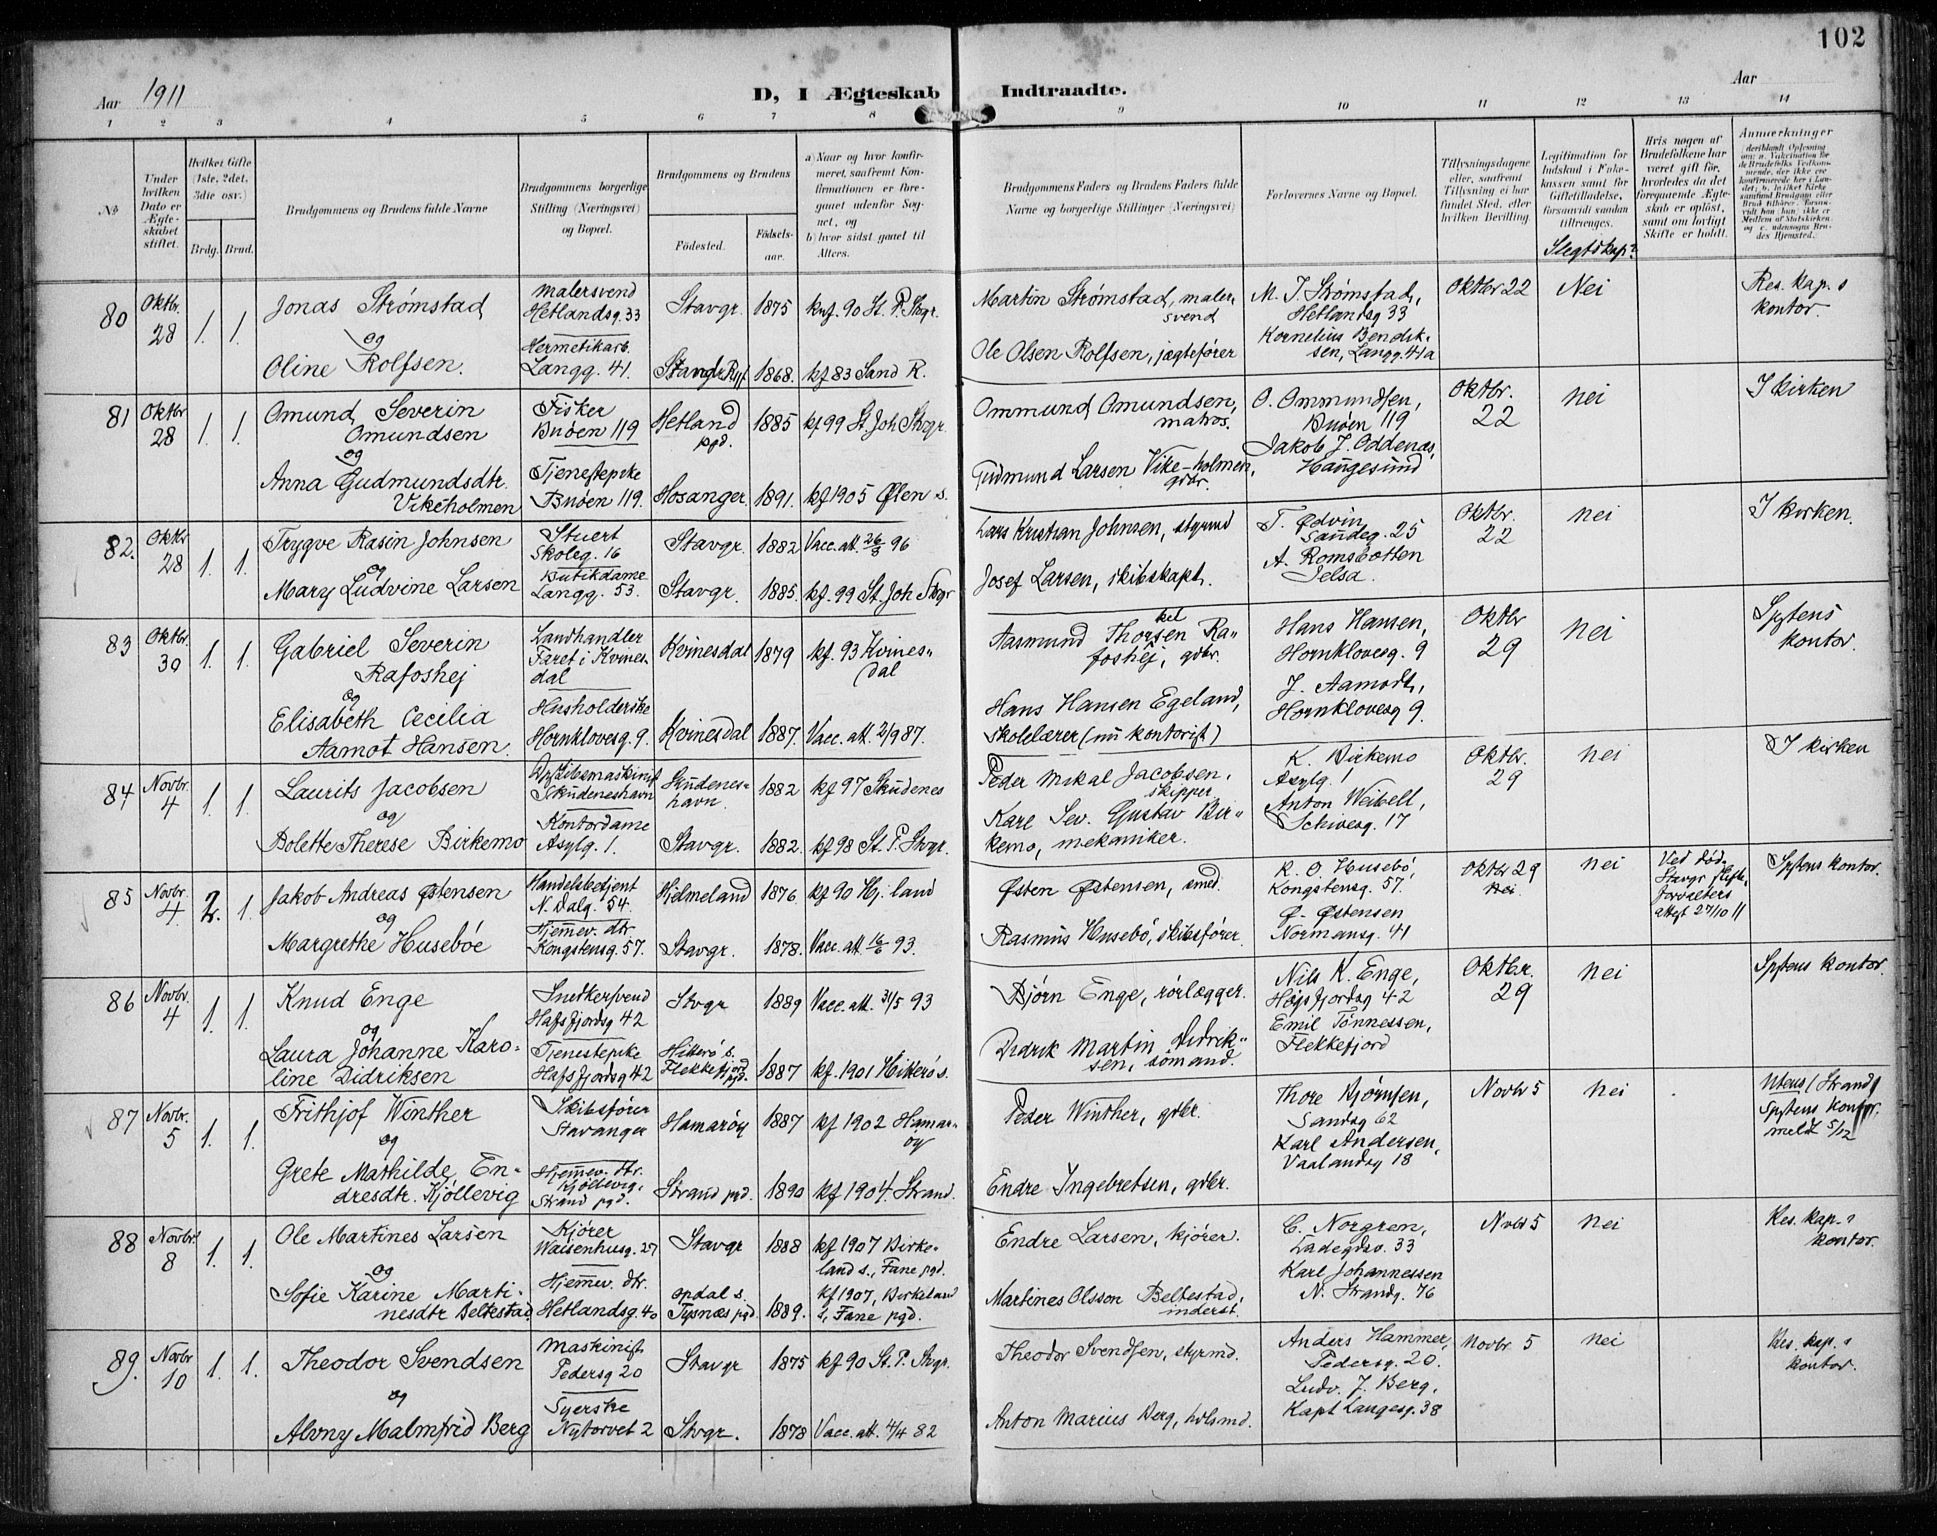 102
Aar 1911
D, I Ægteskab Indtraadte.
Aar
1 2 3 4 5 6 7 8 9 10 11 12 13 14
No
Under hvilken Dato er Ægteskabet stiftet.
Hvilket Gifte (1ste, 2det, 3die osv.)
Brdg. Brud.
Brudgommens og Brudens fulde Navne
Brudgommens borgerlige Stilling (Næringsvei) og Bopæl.
Brudgommens og Brudens
Fødested. Fødselsaar.
a) Naar og hvor konfirmeret, saafremt Konfirmationen er foregaaet udenfor Sognet, og
b) hvor sidst gaaet til Alters.
Brudgommens Faders og Brudens Faders fulde Navne og borgerlige Stillinger (Næringsvei)
Forlovernes Navne og Bopæl.
Tillysningsdagene eller, saafremt Tillysning ei har fundet Sted, efter hvilken Bevilling.
Legitimation for Indskud i Enkekassen samt for Giftetilladelse, forsaavidt saadan tiltrænges.
Slegtskap?
Hvis nogen af Brudefolkene har været gift før, hvorledes da det foregaaende Ægteskab er opløst, samt om lovligt Skifte er holdt.
Anmærkninger
80 Oktbr. 28 1. 1. Jonas Strømstad
Malersvend Hetlandsg. 33
Stavgr. 1875 knf. 90 St. P. Stvgr.
Martin Strømstad, malersvend
M. J. Strømstad, Hetlandsg 33
Oktbr 22 Nei Res. kap.s kontor.
og
Oline Rolfsen.
Hermetikarb. Langg. 41.
1868. kf 83 Sand R.
Ole Olsen Rolfsen, jægtefører
Kornelius Bendiksen, Langg. 41a
81 Oktbr 28 1. 1. Omund Severin Omundsen
Fisker Buøen 119
Hetland pgd. 1885 kf 99 St. Joh Stvgr.
Ommund Omundsen, matros.
O. Ommundsen, Buøen 119
Oktbr. 22 nei I kirken
og
Anna Gudmundsdtr. Vikeholmen
Tjenestepike Buøen 119.
Hosanger. 1891. kf 1905 Ølen s.
Gudmund Larsen Vikeholmen, gdbr.
Jakob J. Oddenas, Haugesund
82. Oktbr 28 1. 1. Trygve Rasin Johnsen
Stuert Skoleg. 16
Stavgr. 1882 Vacc. att. 26/3 96
Lars Kristian Johnsen, styrmd
T. Ødvin Saudeg. 25
Oktbr. 22 nei I kirken.
og
Mary Ludvine Larsen
Butikdame Langg. 53.
Stavgr. 1885. kf. 99 St. Joh Stvgr
Josef Larsen, skibskapt.
A. Romsbotten Jelsa.
83 Oktbr. 30 1. 1. Gabriel Severin Rafoshej
Landhandler Faret i Kvinesdal
Kvinesdal 1879 kf. 93 Kvinesdal
Aasmund Thorkelsen Rafoshej, gdbr.
Hans Hansen, Hornklovesg. 9
Oktbr 29 nei Spytens kontor.
og
Elisabeth Cecilia Aamot Hansen.
Husholderske Hornklovesg. 9.
Kvinesdal 1887. Vacc. att. 2/9 87.
Hans Hansen Egeland, Skolelærer (nu kontorist)
J. Aamodt, Hornklovesg 9.
84 Novbr. 4 1. 1. Laurits Jacobsen
Skudeneshavn
Skudeneshavn. 1882 kf 97 Skudenes
Peder Mikal Jacobsen, skipper.
K. Birkemo Asylg. 1
Oktbr. 29 nei I kirken
og
Bolette Therese Birkemo
Kontordame Asylg. 1.
Stavgr. 1882. kf 98 St. P. Stvgr.
Karl Sev. Gustav Birkemo, mekaniker.
Anton Weibell, Schivesg. 17
85 Novbr. 4. 2. 1. Jakob Andreas Østensen
Handelsbetjent N. Dalg. 54.
Hjelmeland 1876 kf 90 Hj. land
Østen Østensen, smed.
R. O. Husebø, Kongstensg. 57.
Oktbr 29 nei nei
Ved død. Stavgr skifteforvalters attest 27/10 11
Spytens kontor.
og
Margrethe Husebøe
Hjemmev. dtr. Kongstensg. 57.
Stavgr. 1878. Vacc. att 16/6 93.
Rasmus Husebø, skibsfører.
Ø. Østensen Normansg. 41
86 Novbr. 4 1. 1. Knud Enge
Snedkersvend Hafsfjordsg 42
Stvgr 1889 Vacc. att. 31/5 93
Bjørn Enge, rørlægger.
Nils K. Enge, Hafsfjordsg 42
Oktbr. 29 nei Spytens kontor.
og
Laura Johanne Karoline Didriksen
Tjenestepike Hafsfjordsg 42
Hitterø s. Flekkefjord pgd. 1887 kf. 1901 Hitterø s.
Didrik Martin Didriksen, sømand.
Emil Tønnessen, Flekkefjord
87 Novbr. 5 1. 1. Frithjof Winther
Skibsfører Stavanger
Hamarøy 1887 kf 1902 Hamarøy
Peder Winther, gdbr.
Thore Bjørnsen, Sandsg 62
Novbr 5 nei
Utens (Strand) Spytens kontor. meldt 5/12
og
Grete Mathilde Endresdtr. Kjøllevig
Hjemmev. dtr. Kjøllevig, Strand pgd.
Strand pgd. 1890 kf 1904. Strand.
Endre Ingebretsen, gdbr.
Karl Andersen, Vaalandsg 18
88 Novbr. 8 1. 1. Ole Martines Larsen
Kjører Waisenhusg. 27
Stavgr 1888 kf 1907 Birkeland s., Fane pgd.
Endre Larsen, kjører.
C. Norgren, Ladegdsv. 33
Nvbr 5 nei Res. kap.s kontor.
og
Sofie Karine Martinesdtr Beltestad.
Hjemmev. dtr. Hetlandsg. 40
Opdal s. Tysnæs pgd 1889. kf 1907, Birkeland s, Fane pgd.
Martines Olsson Beltestad, inderst.
Karl Johannessen N. Strandg. 76
89. Novbr 10 1. 1. Theodor Svendsen
Maskinist Pedersg 20
Stavgr 1875 kf 90 St. P. Stvgr.
Theodor Svendsen, styrmd.
Anders Hammer, Pedersg. 20.
Novbr. 5 nei Res. kap.s kontor.
og
Alvny Malmfrid Berg
Syerske Nytorvet 2
Stvgr. 1878 Vacc. att. 4/4 82
Anton Marius Berg, hvlsmd.
Ludv. J. Berg, Kapt Langesg. 38